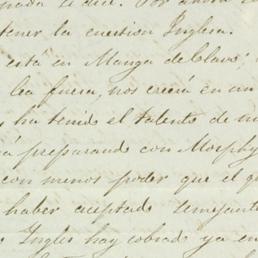 nada le dice. Por ahora
tener la cuestion Inglesa.
está en Manga de Clavo;
lea fuera, nos creería en un
s ha tenido el talento de
á preparando con Morphy
con menos poder que el q
haber aceptado semejante
s Ingles hay cobrado ya en